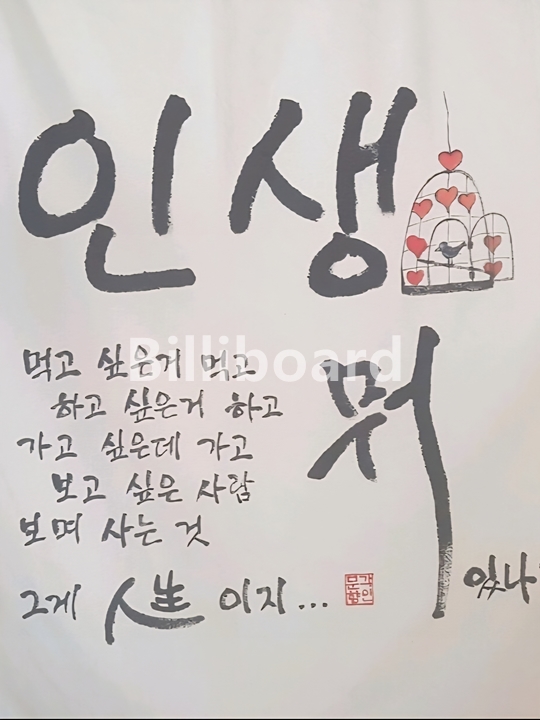 인생
뭐
있나
먹고 싶은거 먹고
하고 싶은거 하고
가고 싶은데 가고
보고 싶은 사람
보며 사는 것
그게 人生 이지...
Billiboard